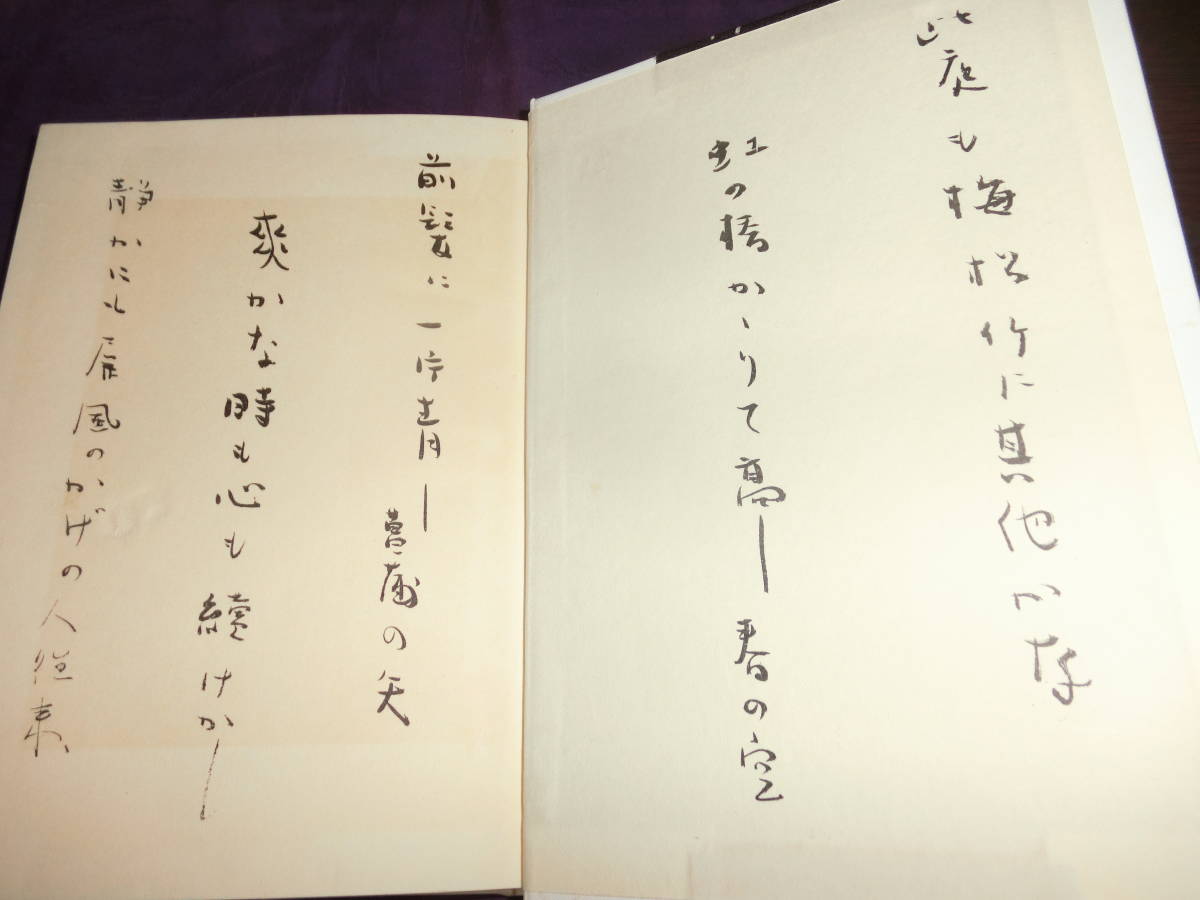 此庭も梅松竹に其他かな
虹の橋かゝりて高し春の空
前髪に一片青し菖蒲の矢
爽かな時も心も續けかし
靜かにも屏風のかげの人往来